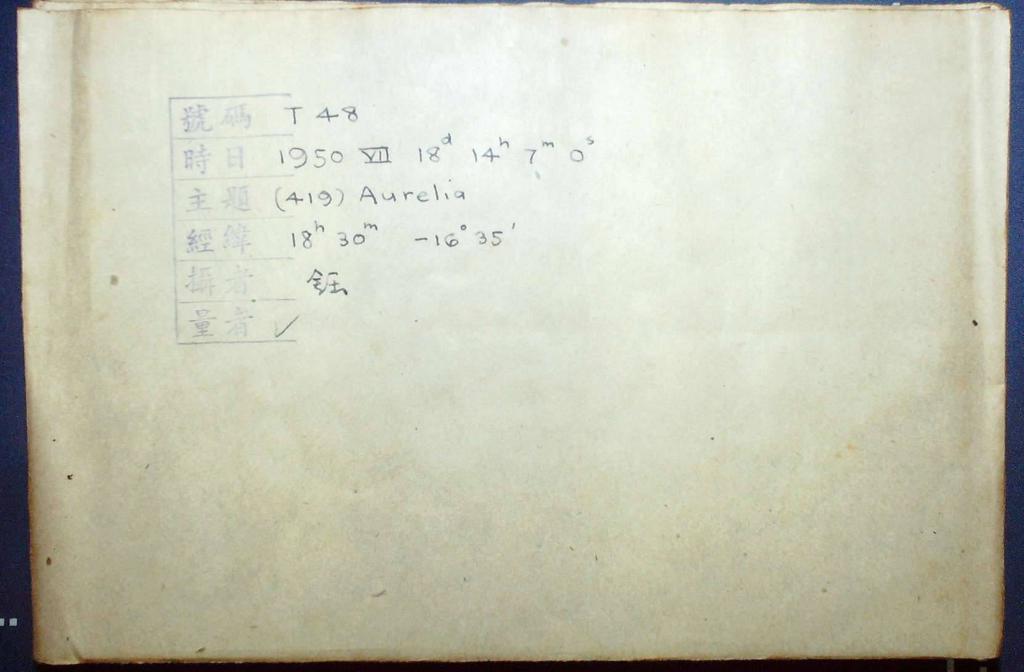 號碼 T 48
時日 1950 VII 18ᵈ 14ʰ 7ᵐ 0ˢ
主題 (419) Aurelia
經緯 18ʰ 30ᵐ -16° 35'
攝者 鈺
量者 ✓